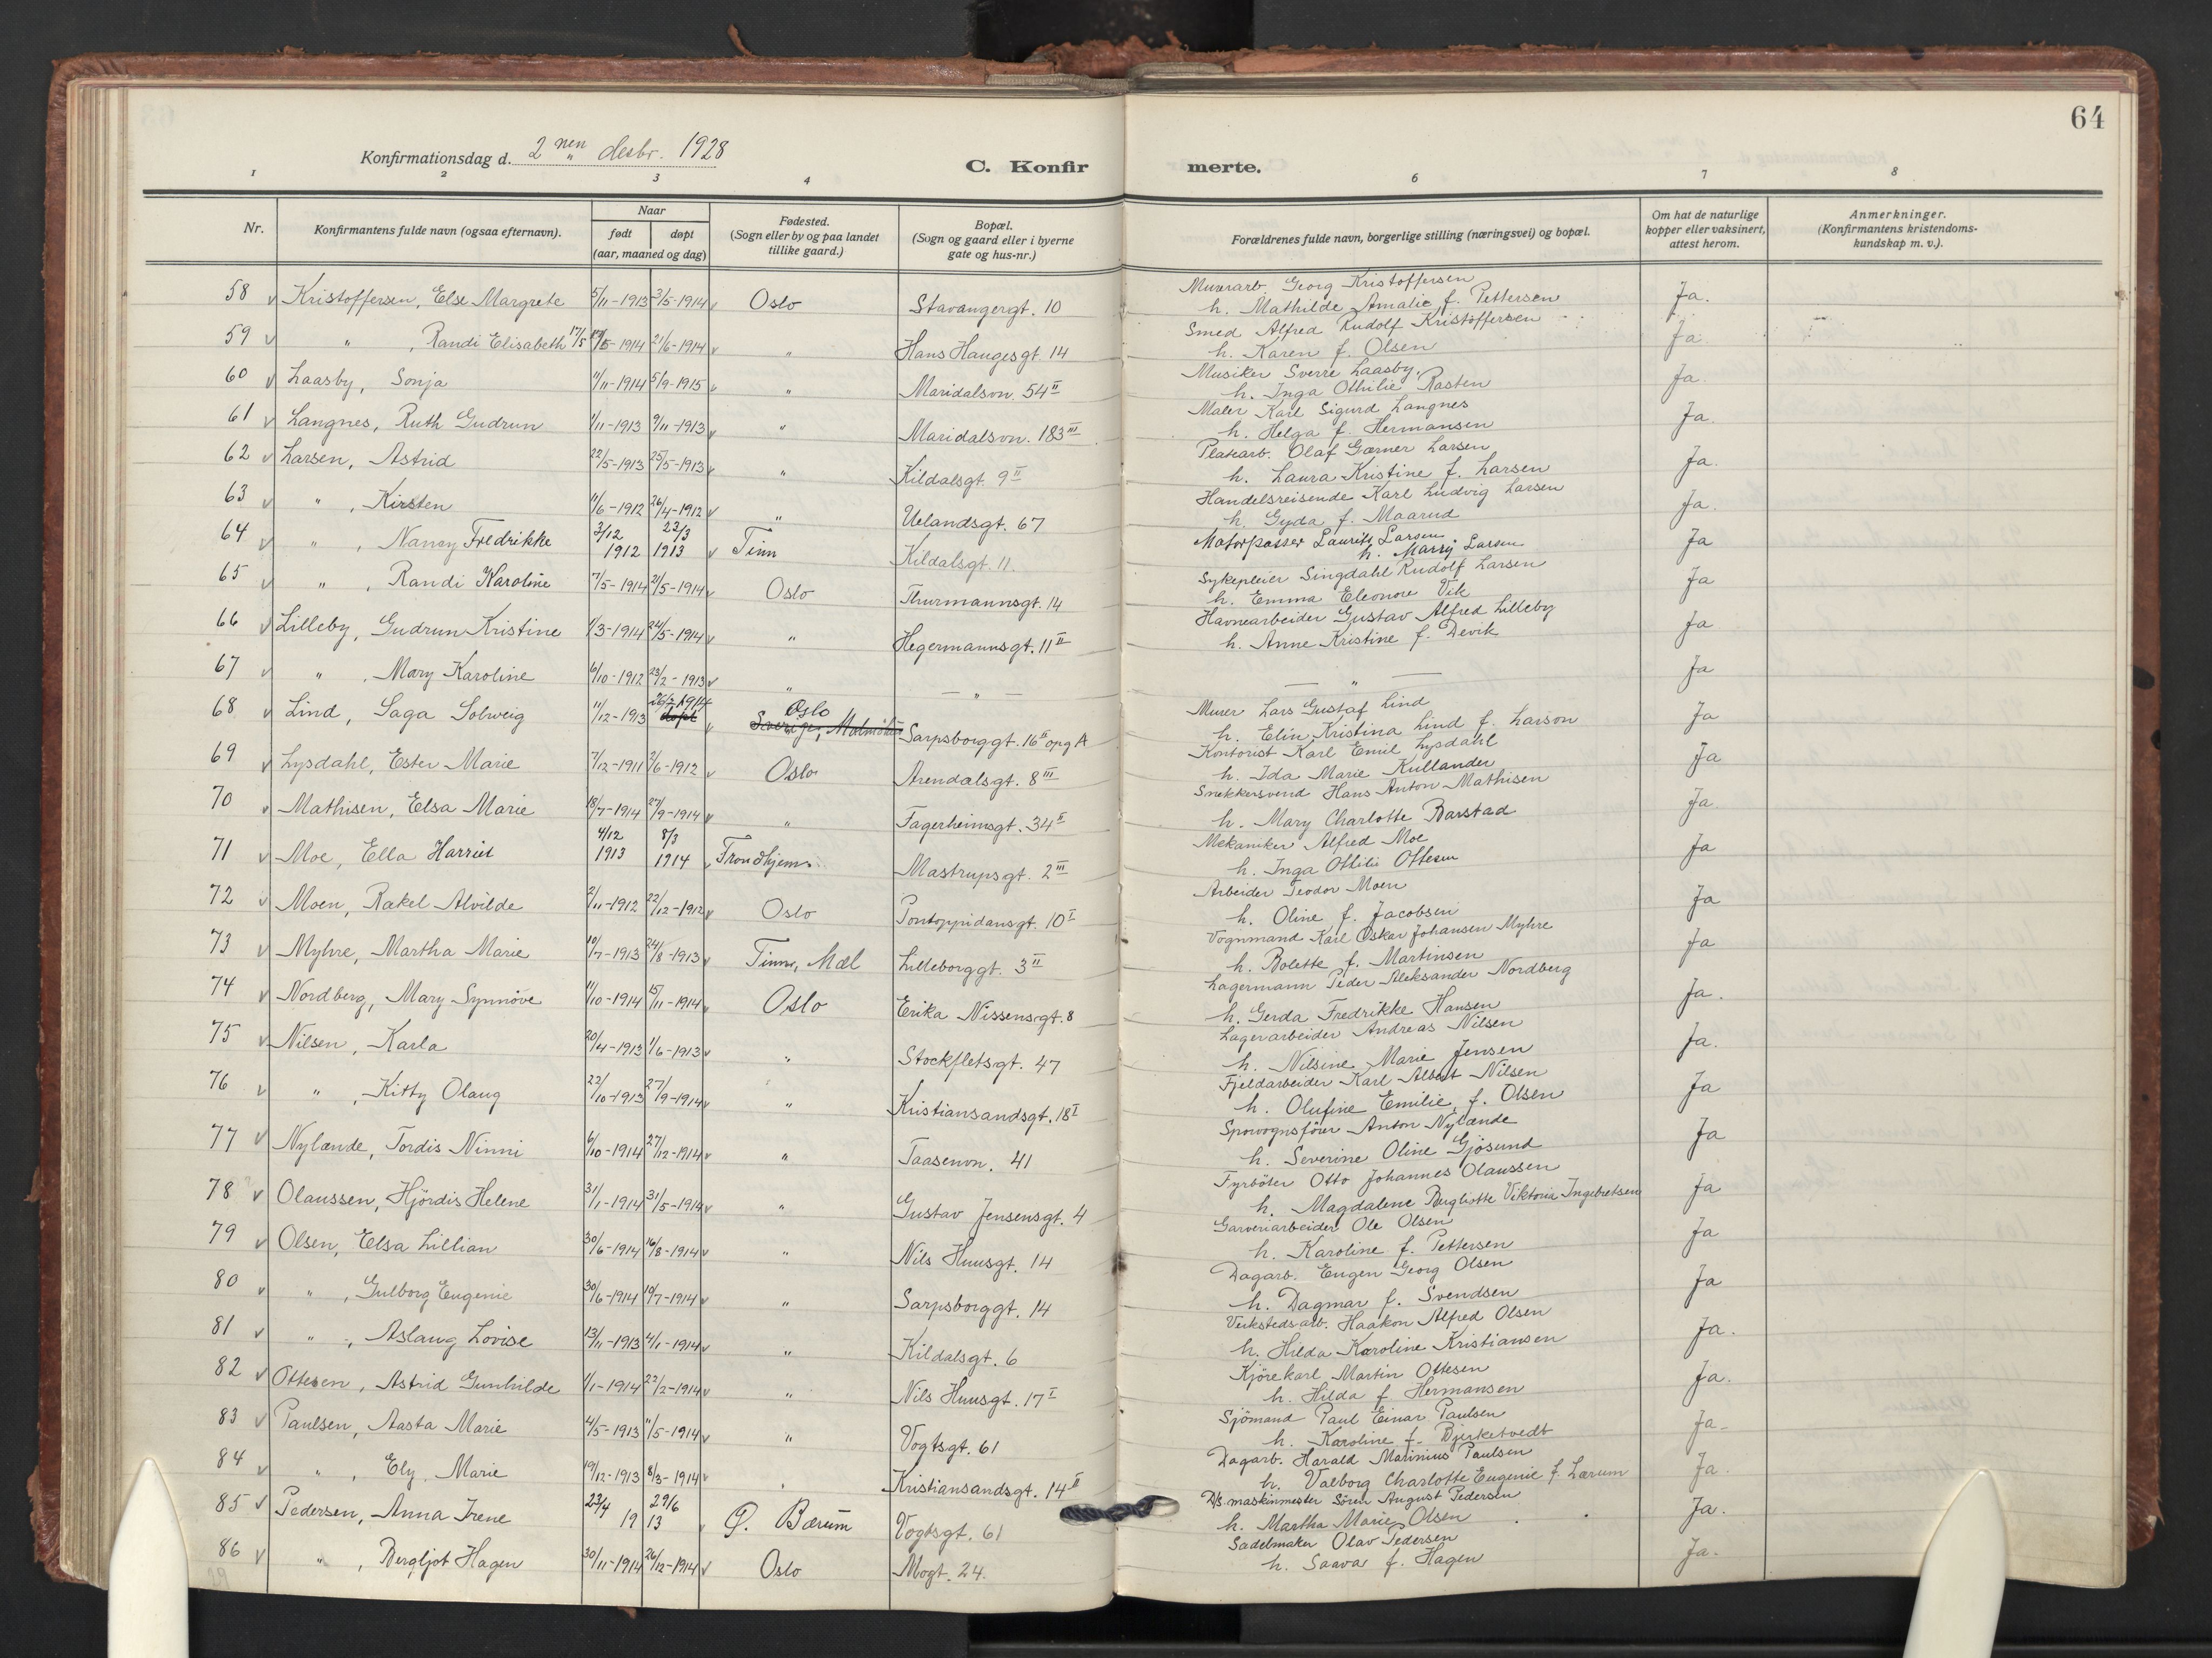 64
Konfirmationsdag d. 2nen desbr. 1928
C. Konfir merte.
1 2 3 4 6 7 8
Nr.
Konfirmantens fulde navn (ogsaa efternavn).
Naar
født døpt
(aar, maaned og dag)
Fødested.
(Sogn eller by og paa landet
tillike gaard.)
Bopæl.
(Sogn og gaard eller i byerne
gate og hus-nr.)
Forældrenes fulde navn, borgerlige stilling (næringsvei) og bopæl.
Om hat de naturlige
kopper eller vaksinert,
attest herom.
Anmerkninger.
(Konfirmantens kristendoms-
kundskap m. v.).
58 v Kristoffersen, Else Margrete 5/11-1913 3/5-1914 v Oslo Stavangergt. 10 Murerarb. Georg Kristoffersen Ja.
h. Mathilde Amalie f. Pettersen
59 v " , Randi Elisabeth 17/5 1914 21/6-1914 v " Hans Haugesgt. 14 Smed Alfred Rudolf Kristoffersen Ja.
h. Karen f. Olsen
60 v Laasby, Sonja 11/11-1914 5/9-1915 v " Maridalsvn. 54 II Musiker Sverre Laasby. Ja.
h. Inga Othilie Rasten
61 v Langnes, Ruth Gudrun 1/11-1913 9/11-1913 v " Maridalsvn. 183 III Maler Karl Sigurd Langnes Ja.
h. Helga f. Hermansen
62 v Larsen, Astrid 22/5-1913 25/5-1913 v " Kildalsgt. 9 II Platearb. Olaf Garner Larsen Ja.
h. Laura Kristine f. Larsen
63 v " , Kirsten 11/6-1912 26/4-1912 v " Uelandsgt. 67 Handelsreisende Karl Ludvig Larsen Ja.
h. Gyda f. Maarud
64 v " , Nancy Fredrikke 3/12 1912 23/3 1913 v Tinn Kildalsgt. 11. Motorpasser Laurits Larsen Ja
h. Marry Larsen
65 v " , Randi Karoline 7/5-1914 21/5-1914 v Oslo Thurmannsgt. 14 Sykepleier Singdahl Rudolf Larsen Ja
h. Emma Eleonore Vik
66 v Lilleby, Gudrun Kristine 1/3-1914 24/5-1914 v " Hegermannsgt. 11 II Havnearbeider Gustav Alfred Lilleby Ja
h. Anne Kristine f. Devik
67 v " , Mary Karoline 6/10-1912 23/2-1913 v " — " — — " — Ja
68 v Lind, Saga Solveig 11/12-1913 26/2 1914 døpt v Oslo Sverige, Malmöhus Sarpsborggt. 16 II opg A Murer Lars Gustaf Lind Ja
h. Elin Kristina Lind f. Larson
69 v Lysdahl, Ester Marie 7/12-1911 2/6-1912 v Oslo Arendalsgt. 8 III Kontorist Karl Emil Lysdahl Ja
h. Ida Marie Kullander
70 v Mathisen, Elsa Marie 18/7-1914 27/9-1914 v " Fagerheimsgt. 34 II Snekkersvend Hans Anton Mathisen Ja.
h. Mary Charlotte Barstad
71 v Moe, Ella Harriet 4/12 1913 8/3 1914 v Trondhjem. Mastrupsgt. 2 III Mekaniker Alfred Moe Ja
h. Inga Othilie Ottesen
72 v Moen, Rakel Alvilde 2/11-1912 22/12-1912 v Oslo Pontoppidansgt. 10 I Arbeider Teodor Moen Ja
h. Oline f. Jacobsen
73 v Myhre, Martha Marie 10/7-1913 24/8-1913 v Tinn, Mæl Lilleborggt. 3 II Vognmand Karl Oskar Johansen Myhre Ja
h. Bolette f. Martinsen
74 v Nordberg, Mary Synnöve 11/10-1914 15/11-1914 v Oslo Erika Nissensgt. 8 Lagermann Peder Aleksander Nordberg Ja.
h. Gerda Fredrikke Hansen
75 v Nilsen, Karla 20/4-1913 1/6-1913 v " Stockfletsgt. 47 Lagerarbeider Andreas Nilsen Ja.
h. Nilsine Marie Jensen
76 v " , Kitty Olaug 22/10-1913 27/9-1914 v " Kristiansandsgt. 18 I Fjeldarbeider Karl Albert Nilsen Ja
h. Olufine Emilie f. Olsen
77 v Nylænde, Tordis Ninni 6/10-1914 27/12-1914 v " Taasenvn. 41 Sporvognsförer Anton Nylænde Ja
h. Severine Oline Gjösund
78 v Olaussen, Hjördis Helene 31/1-1914 31/5-1914 v " Gustav Jensensgt. 4 Fyrböter Otto Johannes Olaussen Ja
h. Magdalene Bergliotte Viktoria Ingebretsen
79 v Olsen, Elsa Lillian 30/6-1914 16/8-1914 v " Nils Huusgt. 14 Garveriarbeider Ole Olsen Ja
h. Karoline f. Pettersen
80 v " , Gulborg Eugenie 30/6-1914 19/7-1914 v " Sarpsborggt. 14 Dagarb. Eugen Georg Olsen Ja
h. Dagmar f. Svendsen
81 v " , Aslaug Lovise 13/11-1913 4/1-1914 v " Kildalsgt. 6 Verkstedsarb. Haakon Alfred Olsen Ja.
h. Hilda Karoline Kristiansen
82 v Ottesen, Astrid Gunhilde 1/1-1914 22/2-1914 v " Nils Huusgt. 17 I Kjörekarl Martin Ottesen Ja.
h. Hilda f. Hermansen
83 v Paulsen, Aasta Marie 4/5-1913 11/5-1914 v " Vogtsgt. 61 Sjömand Paul Einar Paulsen Ja-
h. Karoline f. Bjerketvedt
84 v " , Ely Marie 19/12-1913 8/3-1914 v Kristiansandsgt. 14 II Dagarb. Harald Marinius Paulsen Ja.
h. Valborg Charlotte Eugenie f. Larum
85 v Pedersen, Anna Irene 23/4 1913 29/6 v Ø. Bærum Vogtsgt. 61 D/S. maskinmester Sören August Pedersen Ja.
h. Martha Marie Olsen
86 v " , Bergljot Hagen 30/11-1914 26/12-1914 v Oslo Mogt. 24. Sadelmaker Olav Pedersen Ja.
h. Saava f. Hagen